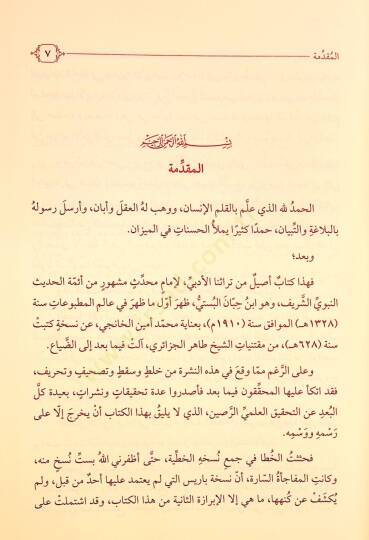 المُقدِّمة
٧
بسم الله الرحمن الرحيم
المقدِّمة
الحمدُ لله الذي علَّم بالقلمِ الإنسان، ووهب لهُ العقلَ وأبان، وأرسلَ رسولهُ
بالبلاغةِ والتِّبيان، حمدًا كثيرًا يملأُ الحسناتِ في الميزان.
وبعد؛
فهذا كتابٌ أصيلٌ من تراثنا الأدبيِّ، لإمامٍ محدِّثٍ مشهورٍ من أئمّة الحديث
النبويِّ الشَّريف، وهو ابنُ حِبّانَ البُستيُّ، ظهرَ أوّل ما ظهرَ في عالم المطبوعاتِ سنة
(١٣٢٨هـ) الموافق سنة (١٩١٠م)، بعناية محمّد أمين الخانجي، عن نسخةٍ كتبتْ
سنة (٦٢٨هـ)، من مقتنياتِ الشيخ طاهر الجزائري، آلتْ فيما بعد إلى الضَّياع.
وعلى الرَّغمِ ممّا وقعَ في هذه النشرة من خلطٍ وسقطٍ وتصحيفٍ وتحريف،
فقد اتكأ عليها المحقِّقون فيما بعد فأصدروا عدة تحقيقاتٍ ونشرات، بعيدة كلَّ
البُعدِ عن التحقيق العلميِّ الرَّصين، الذي لا يليقُ بهذا الكتاب أنْ يخرجَ إلَّا على
رَسْمِهِ ووَسْمِه.
فحثثتُ الخُطا في جمعِ نُسخِهِ الخطِّية، حتَّى أظفرني اللهُ بستِّ نُسخٍ منه،
وكانتِ المفاجأةُ السّارة، أنَّ نسخة باريس التي لم يعتمد عليها أحدٌ من قبل، ولم
يُكشَفْ عن كُنهِها، ما هي إلا الإبرازة الثانية من هذا الكتاب، وقد اشتملتْ على